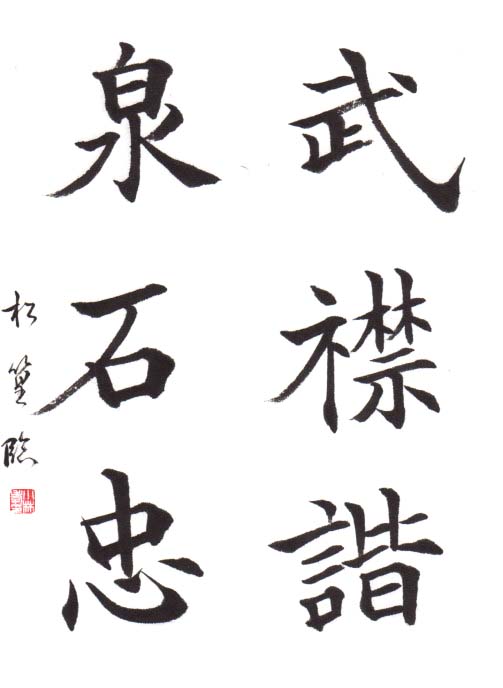 武襟諧
泉石忠
松篁臨